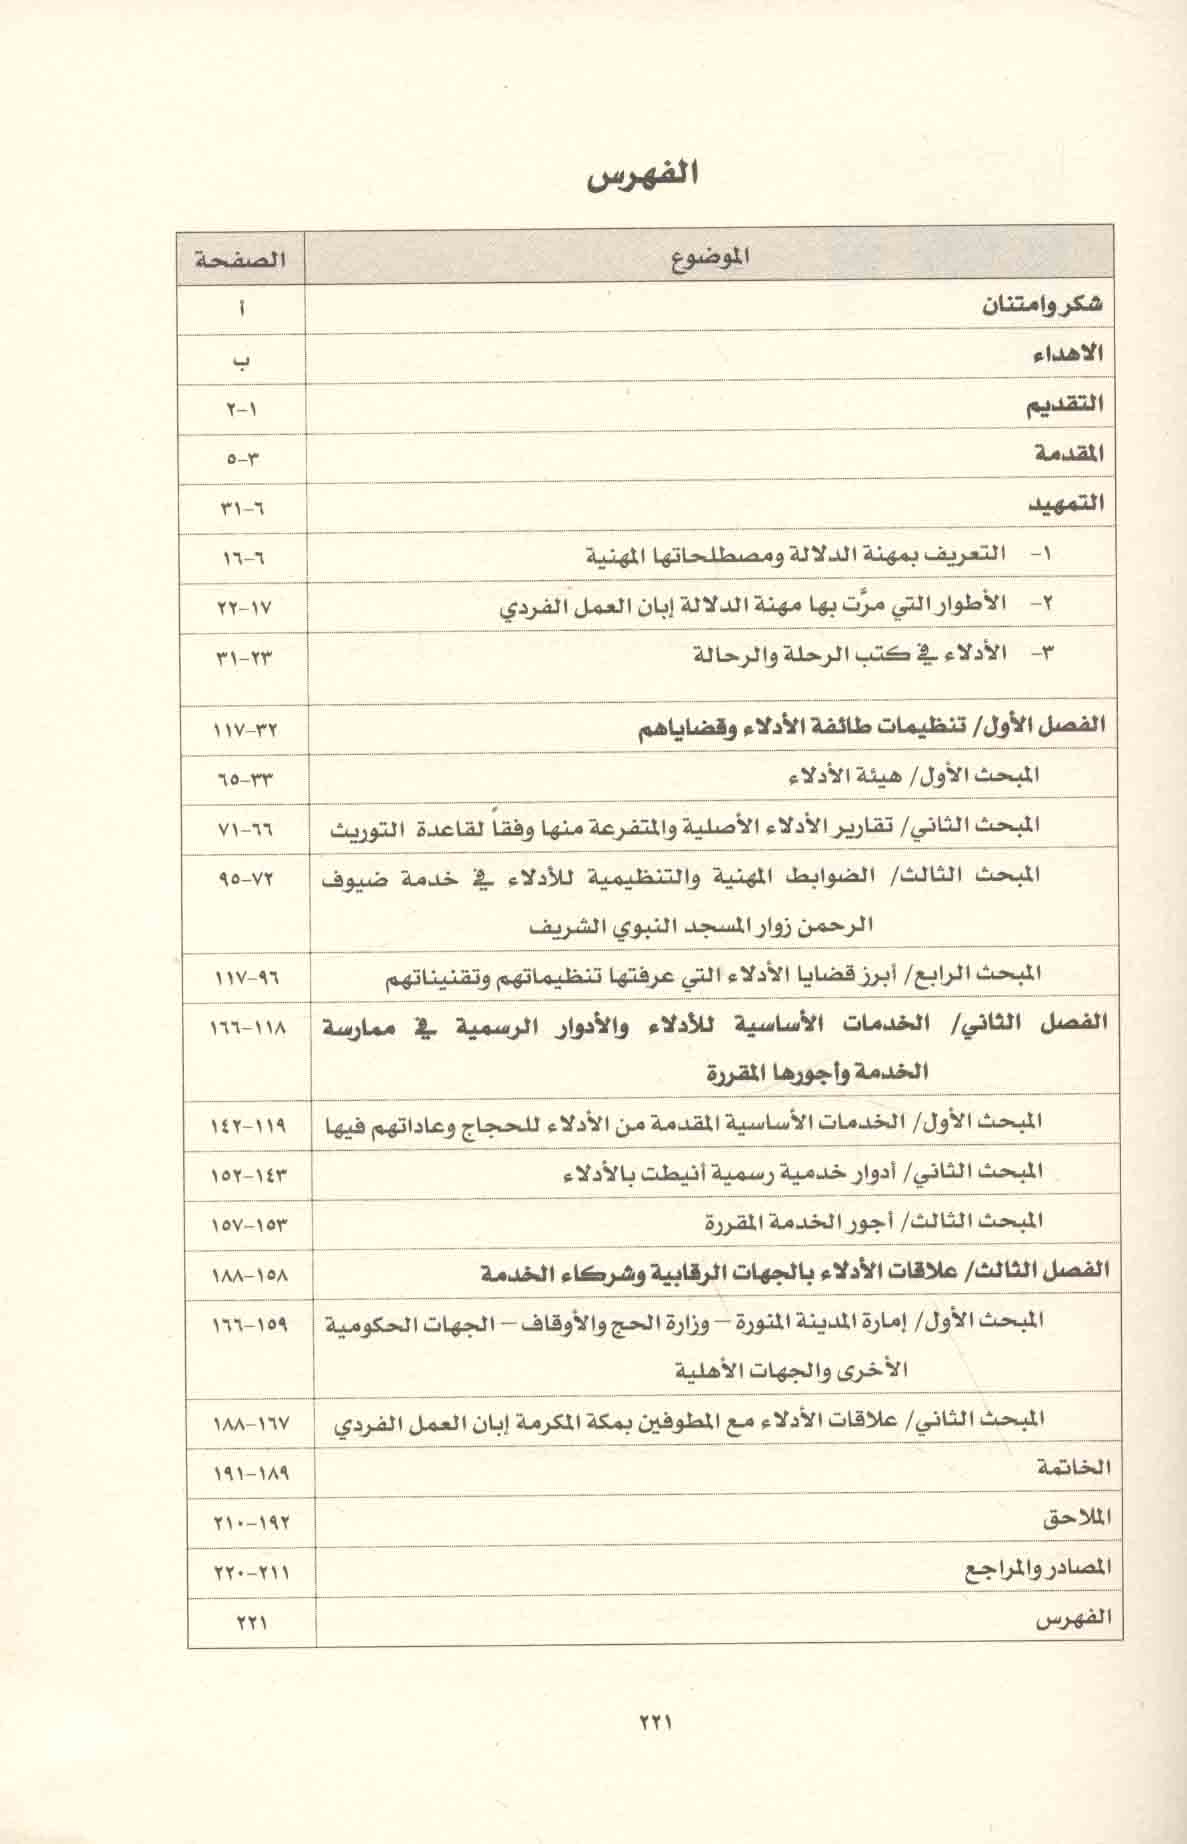 الفهرس
الموضوع الصفحة
شكر وامتنان أ
الاهداء ب
التقديم ١-٢
المقدمة ٣-٥
التمهيد ٦-٣١
١- التعريف بمهنة الدلالة ومصطلحاتها المهنية ٦-١٦
٢- الأطوار التي مرَّت بها مهنة الدلالة إبان العمل الفردي ١٧-٢٢
٣- الأدلاء في كتب الرحلة والرحالة ٢٣-٣١
الفصل الأول/ تنظيمات طائفة الأدلاء وقضاياهم ٣٢-١١٧
المبحث الأول/ هيئة الأدلاء ٣٣-٦٥
المبحث الثاني/ تقارير الأدلاء الأصلية والمتفرعة منها وفقاً لقاعدة التوريث ٦٦-٧١
المبحث الثالث/ الضوابط المهنية والتنظيمية للأدلاء في خدمة ضيوف ٧٢-٩٥
الرحمن زوار المسجد النبوي الشريف
المبحث الرابع/ أبرز قضايا الأدلاء التي عرفتها تنظيماتهم وتقنيناتهم ٩٦-١١٧
الفصل الثاني/ الخدمات الأساسية للأدلاء والأدوار الرسمية في ممارسة ١١٨-١٦٦
الخدمة وأجورها المقررة
المبحث الأول/ الخدمات الأساسية المقدمة من الأدلاء للحجاج وعاداتهم فيها ١١٩-١٤٢
المبحث الثاني/ أدوار خدمية رسمية أنيطت بالأدلاء ١٤٣-١٥٢
المبحث الثالث/ أجور الخدمة المقررة ١٥٣-١٥٧
الفصل الثالث/ علاقات الأدلاء بالجهات الرقابية وشركاء الخدمة ١٥٨-١٨٨
المبحث الأول/ إمارة المدينة المنورة – وزارة الحج والأوقاف – الجهات الحكومية ١٥٩-١٦٦
الأخرى والجهات الأهلية
المبحث الثاني/ علاقات الأدلاء مع المطوفين بمكة المكرمة إبان العمل الفردي ١٦٧-١٨٨
الخاتمة ١٨٩-١٩١
الملاحق ١٩٢-٢١٠
المصادر والمراجع ٢١١-٢٢٠
الفهرس ٢٢١
٢٢١